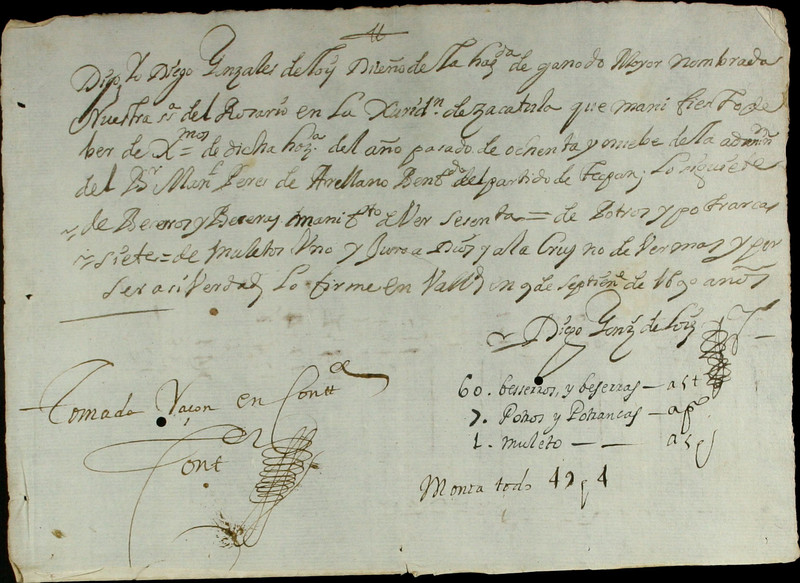 Digo Yo Diego Gonzales de Loiz Dueño de la haz.da de ganado Mayor nombrada
Nuestra Sa del Rosario en la Xurid.n de zacatula que mani fiesto de
ber de Xmos = de dicha haz.a del año pasado de ochenta y nuebe de la admin
del Br Manl Peres de Arellano Benfdo del partido de Tecpan, Lo siguiete
de Beceros y Beceras manifto dever sesenta = de Potros y potrancas
siete = de muletos Uno y Juro a Dios y a la Cruz no dever mas y por
ser asi Verdad Lo firme en Valld en 9 de Septiene de 1690 años
Diego Gonz de Loiz
60. besserros, y beserras — a 5 t
7. Potros y Potrancas — a po
1. muleto — — a
Monta todo 49 p 4
Tomado Raçon en Contt
Font